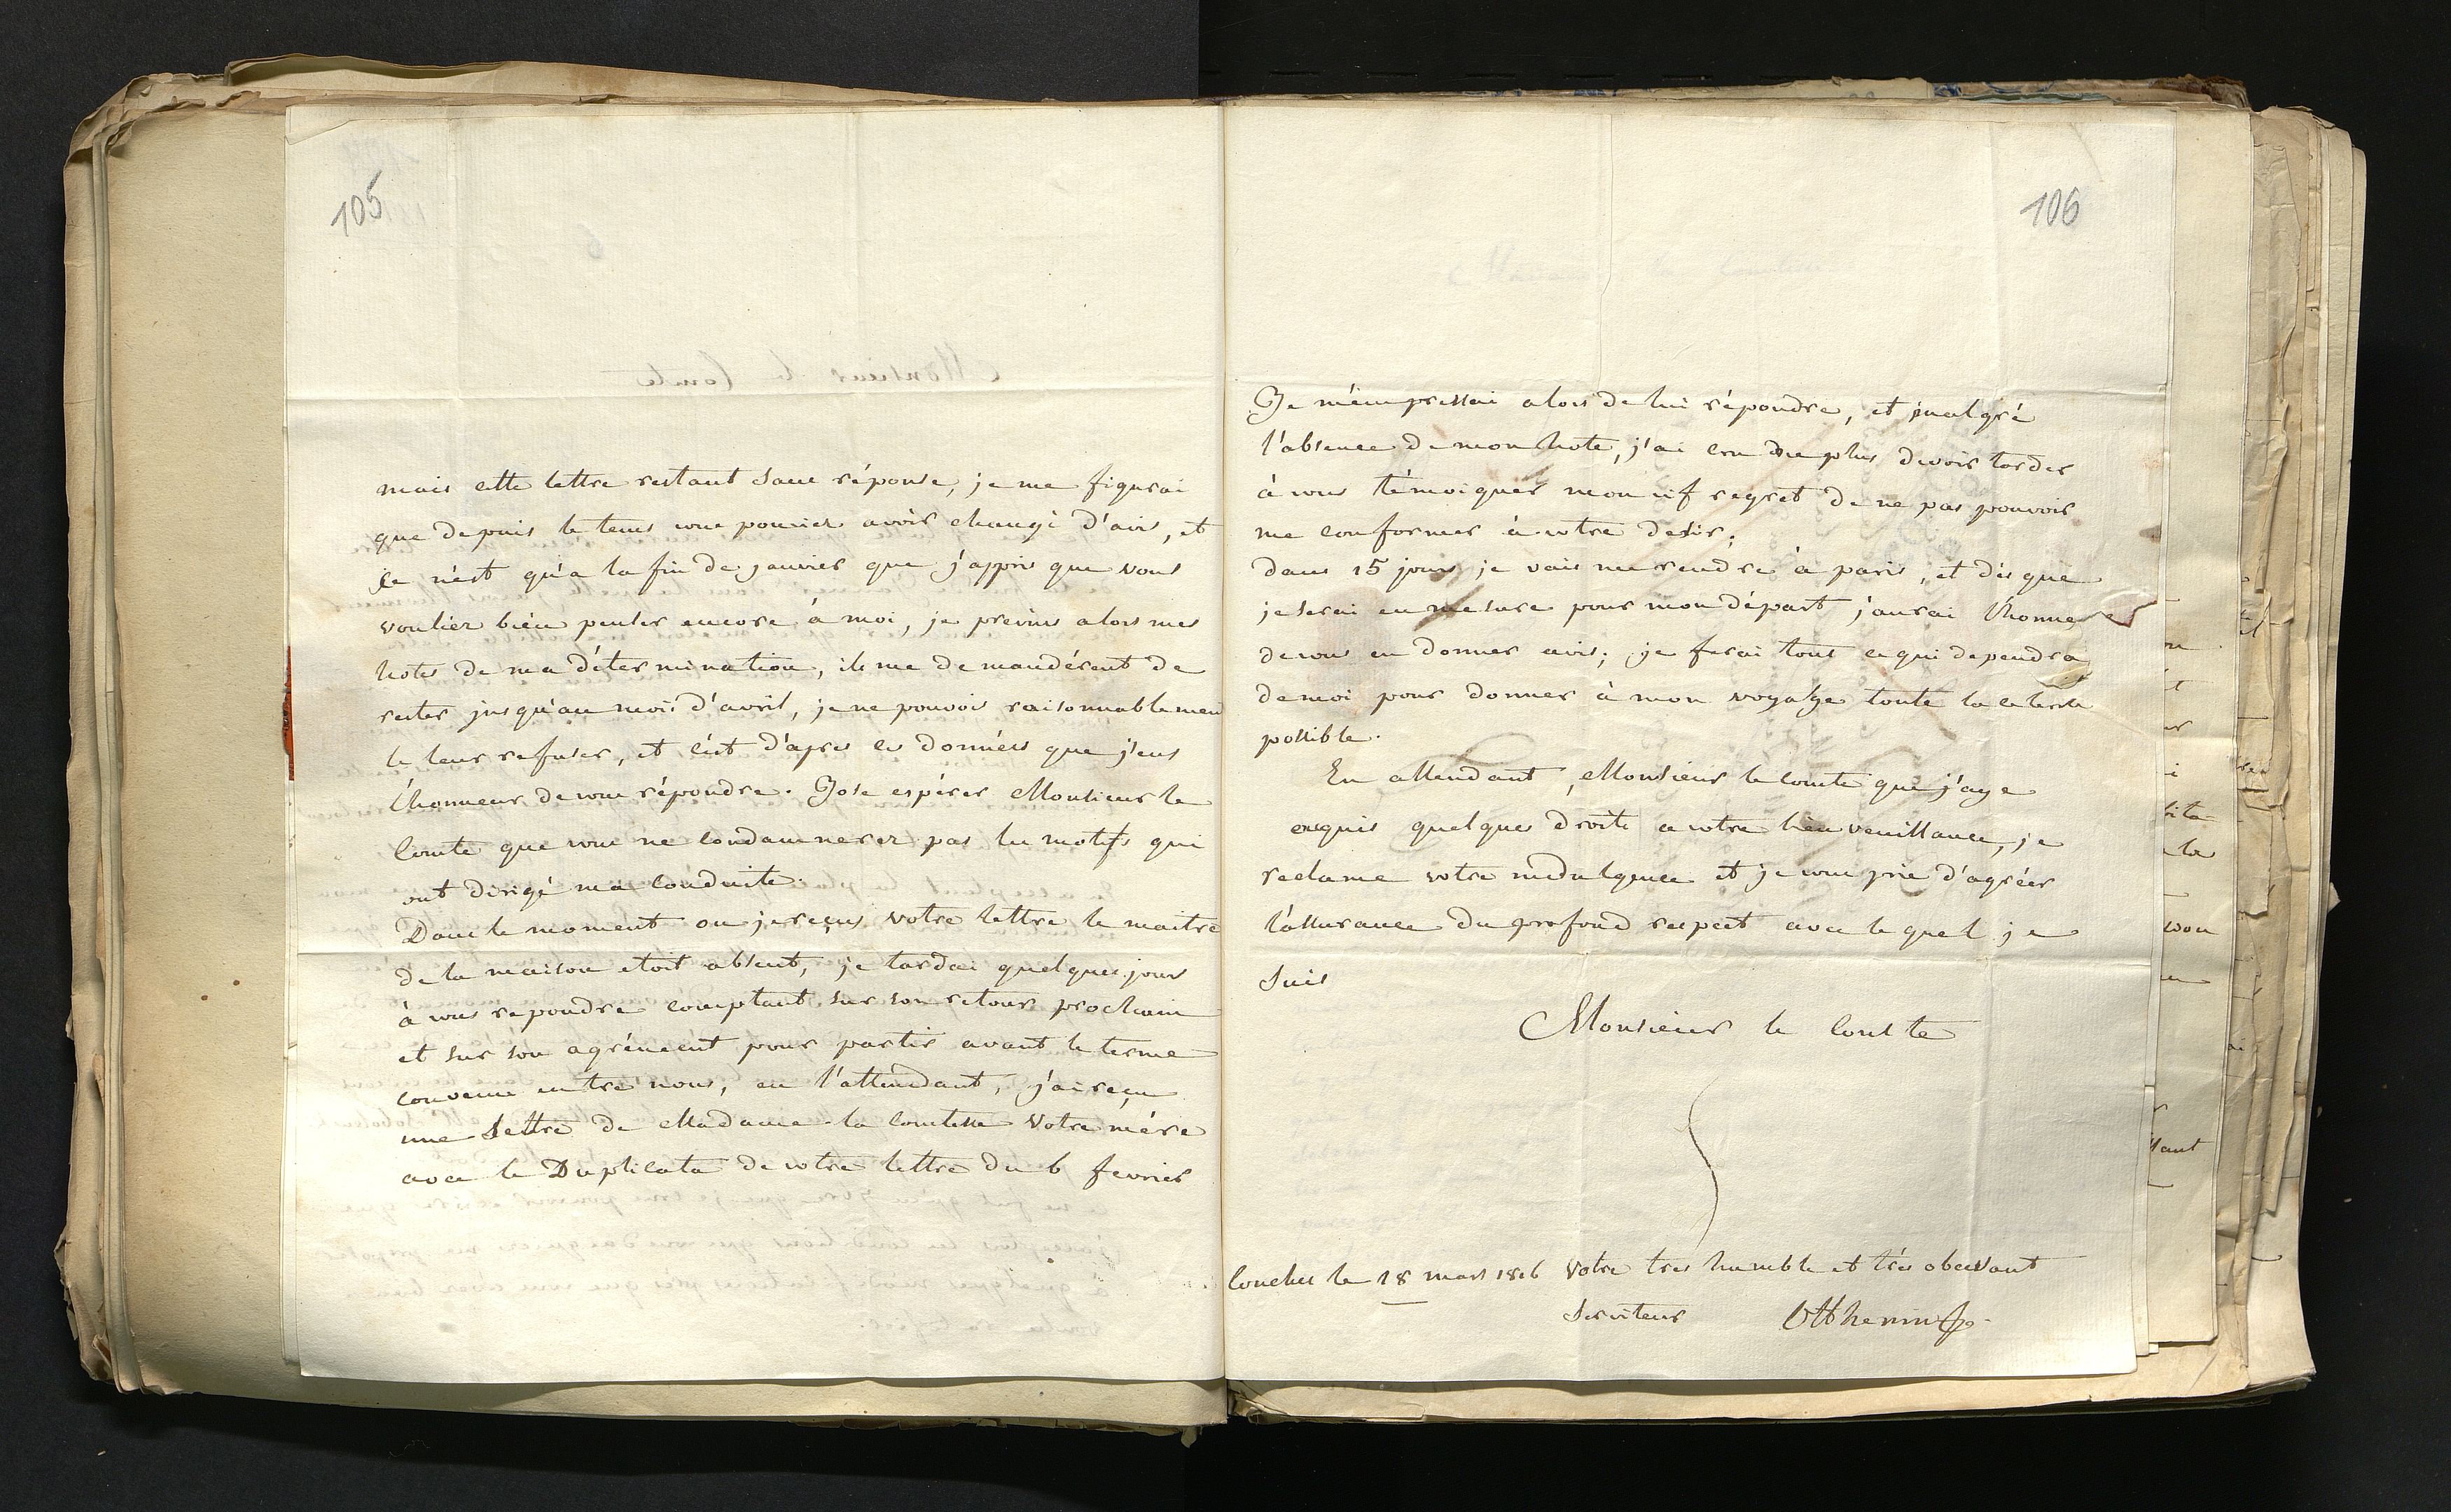 105
mais cette lettre restant sans réponse, je me figurai
que depuis le tems vous pouviez avoir changé d'avis, et
ce n'est qu'a la fin de janvier que j'appris que vous
vouliez bien penser encore à moi, je prévins alors mes
hotes de ma détermination, ils me demandérent de
rester jusqu'au mois d'avril, je ne pouvois raisonnablement
le leur refuser, et c'est d'apres ces données que j'eus
l'honneur de vous répondre. J'ose espérer Monsieur le
Comte que vous ne condamnerez pas les motifs qui
ont dirigé ma conduite.
Dans le moment ou je reçus votre lettre le maitre
de la maison etoit absent, je tardai quelques jours
à vous repondre comptant sur son retour prochain
et sur son agrément pour partir avant le terme
convenu entre nous, en l'attendant, j'ai reçu
une Lettre de Madame la comtesse Votre mére
avec le Duplicata de votre lettre du 6 fevrier
106
Je m'empressai alors de lui répondre, et malgré
l'absence de mon hote, j'ai cru ne plus devoir tarder
à vous témoigner mon vif regret de ne pas pouvoir
me conformer à votre desir;
dans 15 jours je vais me rendre à paris, et dés que
je serai en mesure pour mon départ j'aurai l'honneur
de vous en donner avis; je ferai tout ce qui dependra
de moi pour donner à mon voyage toute la celerité
possible.
En attendant, Monsieur le comte que j'aye
acquis quelques droits a votre bienveuillance, je
reclame votre indulgence et je vous prie d'agréer
l'assurance du profond respect avec lequel je
suis
Monsieur le Comte
Conches le 18 mars 1816 Votre tres humble et trés obeissant
Serviteur Otthenin